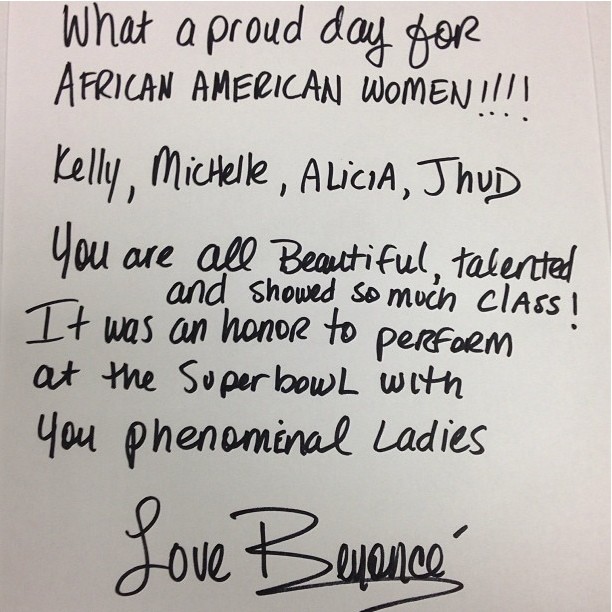 What a proud day foR
AFRICAN AMERICAN WOMEN!!!!
Kelly, MicHelle, ALiciA, JhuD
You are all Beautiful, talented
and showed so much clAss!
It was an honoR to peRfoRm
at the SuperbowL with
you phenominal Ladies
Love Beyoncé